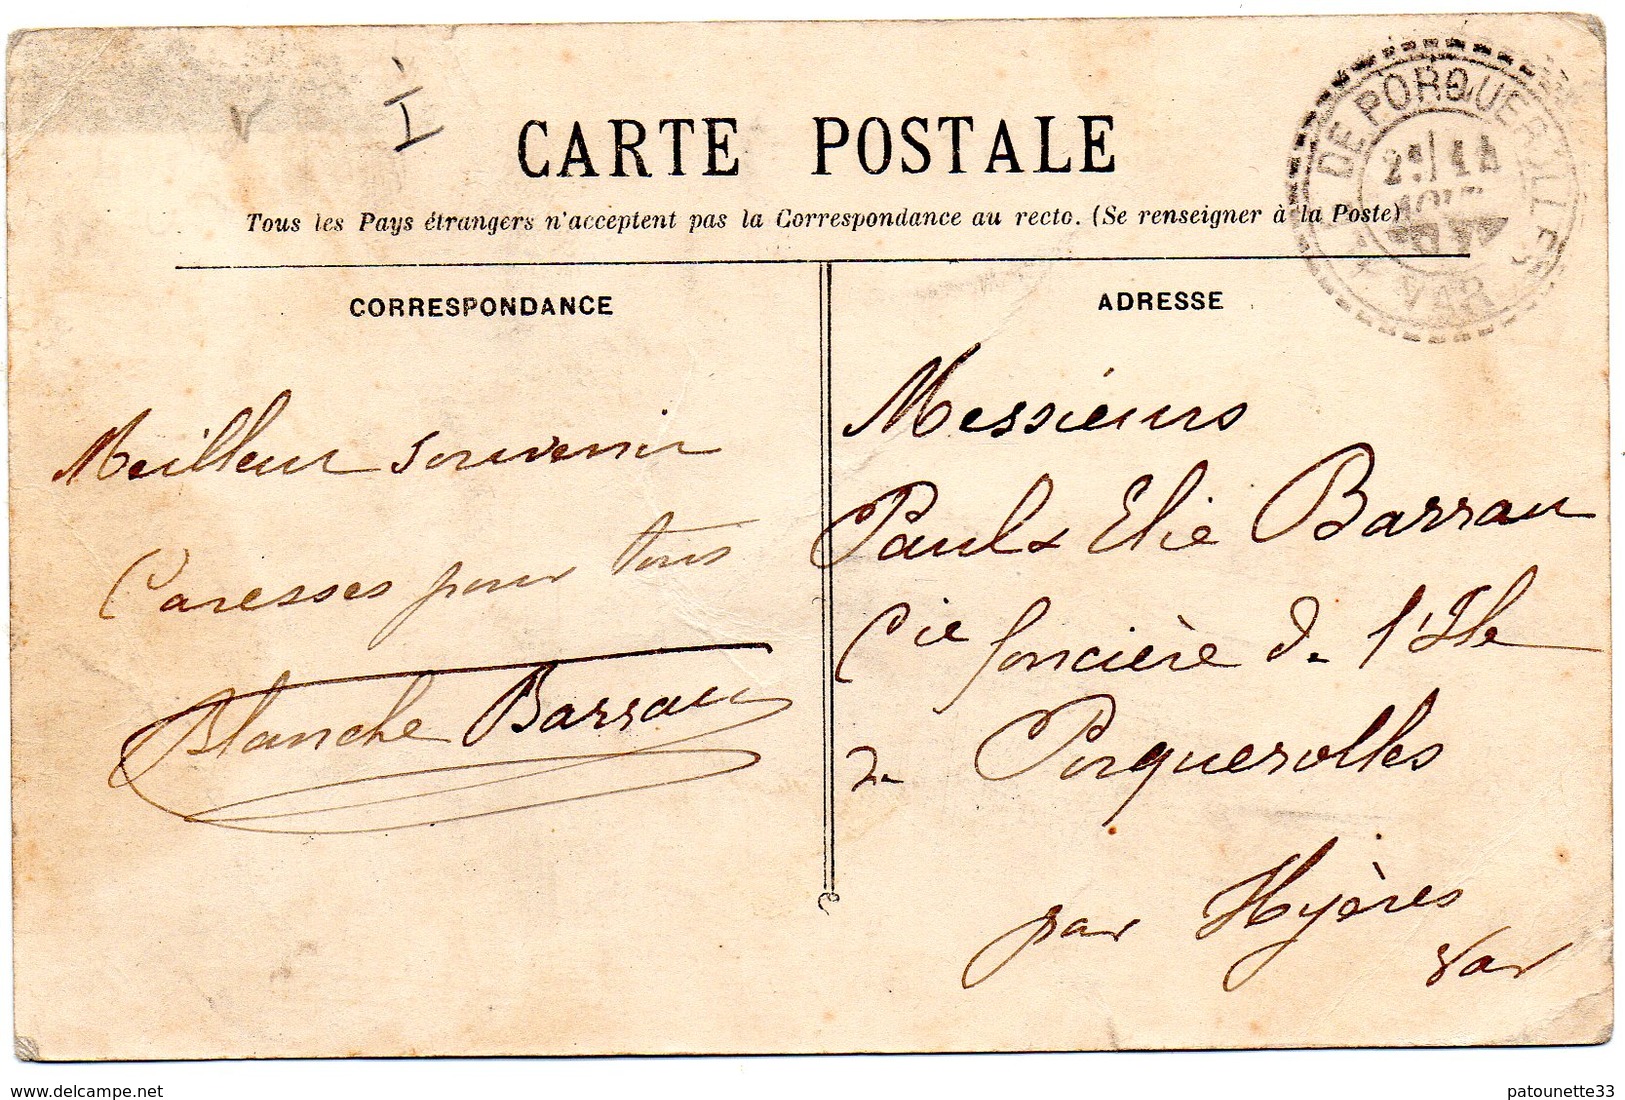 I
CARTE POSTALE
Tous les Pays étrangers n'acceptent pas la Correspondance au recto. (Se renseigner à la Poste)
DE PORQUEROLLES
VAR
CORRESPONDANCE
Meilleur souvenir
Caresses pour tous
Blanche Barrau
ADRESSE
Messieurs
Paul & Elie Barrau
Cie foncière de l'Ile
de Porquerolles
par Hyères
Var
delcampe.net
patounette33